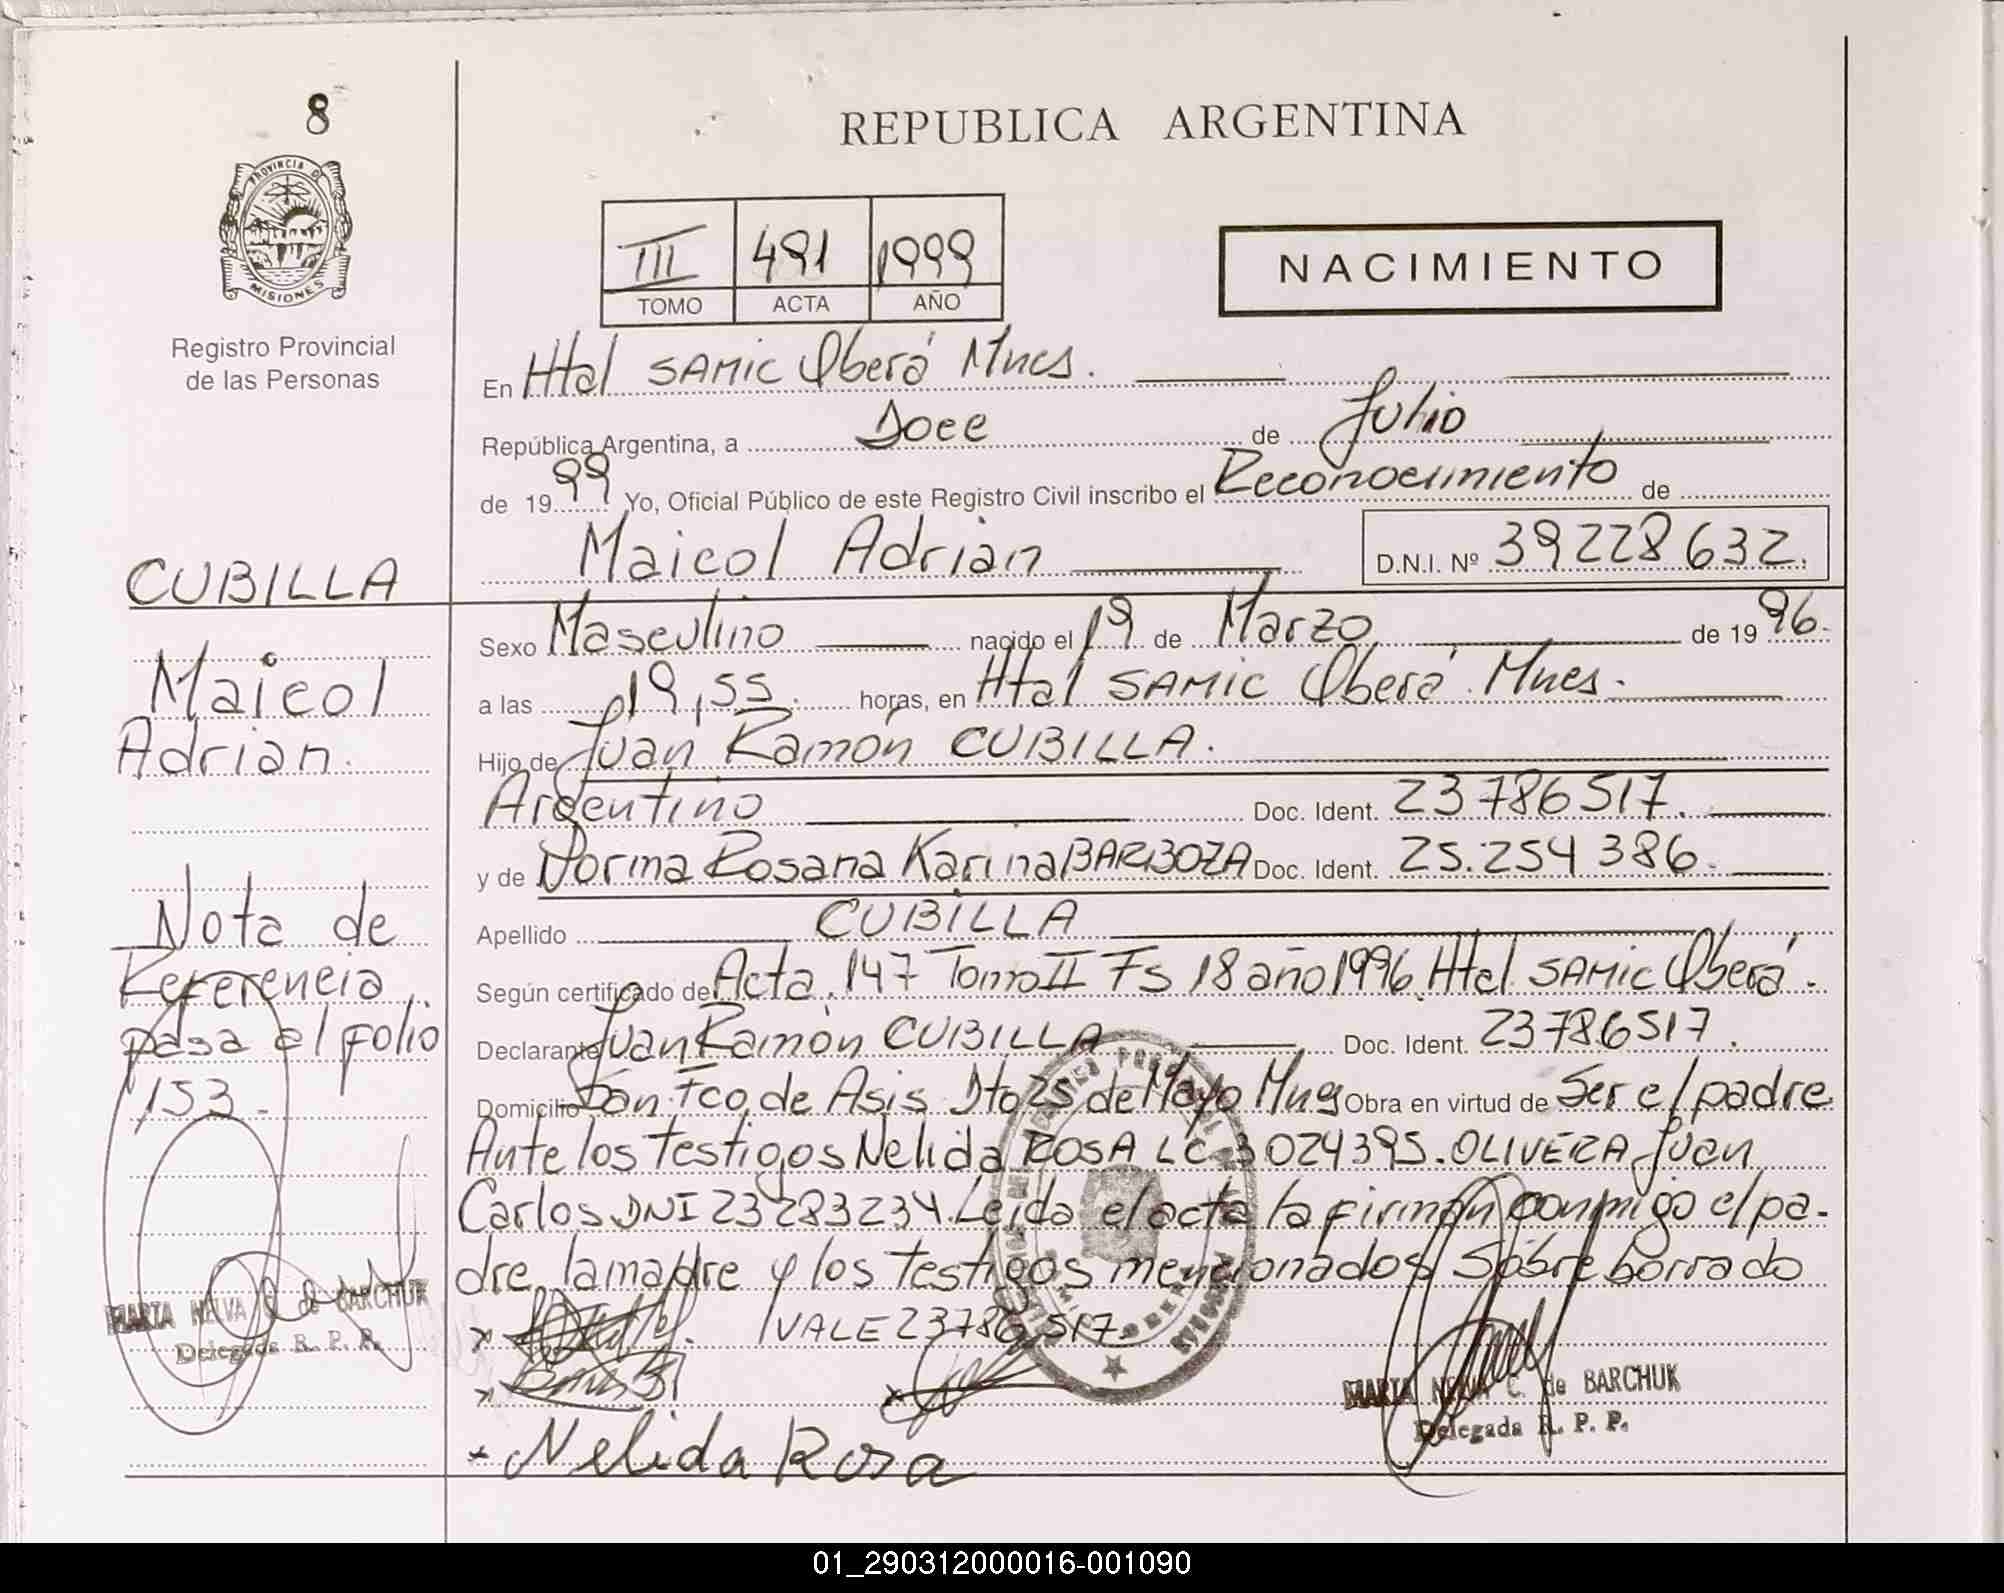 8
REPUBLICA ARGENTINA
PROVINCIA D
MISIONES
Registro Provincial
de las Personas
III 491 1999
TOMO ACTA AÑO
NACIMIENTO
En Htal SAMIC Oberá Mnes.
República Argentina, a Doce de Julio
de 1999 Yo, Oficial Público de este Registro Civil inscribo el Reconocimiento de
Maicol Adrian D.N.I. Nº 39228632.
Sexo Masculino nacido el 19 de Marzo de 1996.
a las 19,55. horas, en Htal SAMIC Oberá Mnes.
Hijo de Juan Ramón CUBILLA.
Argentino Doc. Ident. 23786517.
y de Norma Rosana Karina BARBOZA Doc. Ident. 25.254386.
Apellido CUBILLA
Según certificado de Acta.147 Tomo II Fs 18 año 1996 Htal SAMIC Oberá.
Declarante Juan Ramòn CUBILLA Doc. Ident. 23786517.
Domicilio San Fco de Asis Dto 25 de Mayo Mns Obra en virtud de Ser el padre
Ante los testigos Nelida ROSA LC 3024395. OLIVERA Juan
Carlos DNI 23283234. Leida el acta la firman conmigo el pa-
dre, la madre y los testigos mencionados Sobre borrado
VALE 23786517.
x Nelida Rosa
MARTA NELVA C. de BARCHUK
Delegada R. P. P.
CUBILLA
Maicol
Adrian.
Nota de
Referencia
pasa al folio
153.
MARTA NELVA C. de BARCHUK
Delegada R. P. P.
01_290312000016-001090